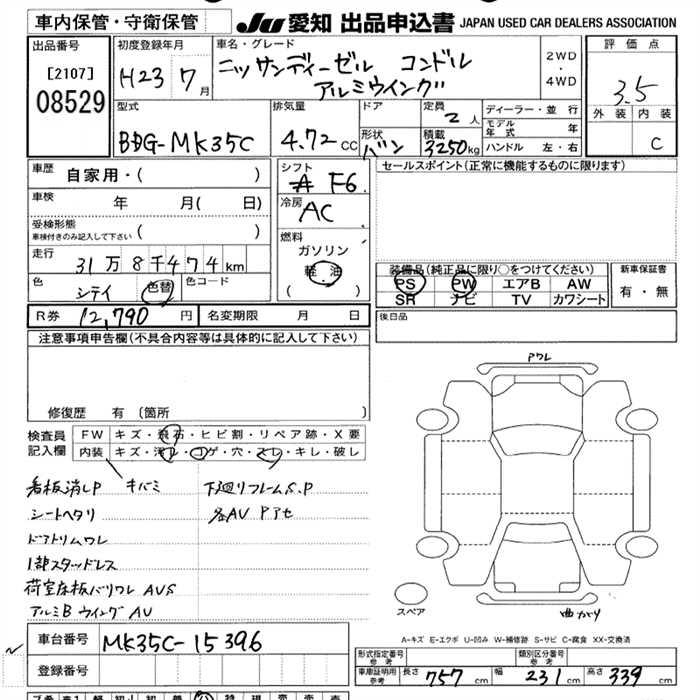 車内保管・守衛保管 JU 愛知 出品申込書 JAPAN USED CAR DEALERS ASSOCIATION
出品番号 [2107] 08529
初度登録年月 H23 7月
車名・グレード ニッサンディーゼル コンドル アルミウイング
2WD・4WD
評価点 3.5
外装 内装 C
型式 BDG-MK35C
排気量 4.72 CC
ドア 形状 バン
定員 2人
積載 3250kg
ディーラー・並行
モデル年式 年
ハンドル 左・右
車歴 自家用・( )
車検 年 月( 日)
受検形態 車検付きのみ記入して下さい ( )
走行 31万8千474km
色 シテイ 色替 色コード
シフト F6
冷房 AC
燃料 ガソリン 軽油 ( )
セールスポイント(正常に機能するものに限ります)
装備品(純正品に限り○をつけてください)
PS PW エアB AW
SR ナビ TV カワシート
新車保証書 有・無
R券 12,790円 名変期限 月 日
後日品
注意事項申告欄(不具合内容等は具体的に記入して下さい)
修復歴 有(箇所 )
検査員記入欄
FW キズ・飛石・ヒビ割・リペア跡・X要
内装 キズ・汚レ・コゲ・穴・スレ・キレ・破レ
看板消しP キバミ 下廻りフレームS.P
シートヘタリ 各AU Pアセ
ドアトリムワレ
1部スタッドレス
荷室床板バリワレ AUS
アルミB ウイングAU
Pワレ
スペア
曲がり
A-キズ E-エクボ U-凹み W-補修跡 S-サビ C-腐食 XX-交換済
車台番号 MK35C-15396
登録番号
形式指定番号 参考 類別区分番号 参考
車庫証明用 参考 長さ 757cm 幅 231cm 高さ 339cm